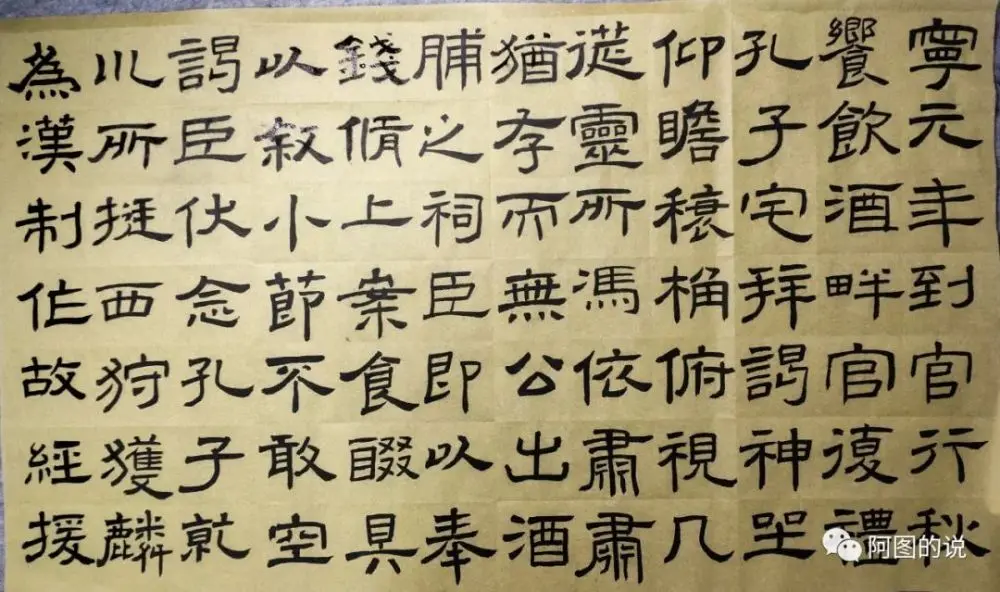 寧元年到官行秋
饗飲酒畔官復禮
孔子宅拜謁神坐
仰瞻榱桷俯視几
筵靈所馮依肅肅
猶存而無公出酒
脯之祠臣即以奉
錢脩上案食醊具
以叙小節不敢空
謁臣伏念孔子乾
川所挺西狩獲麟
為漢制作故經援
阿图的说